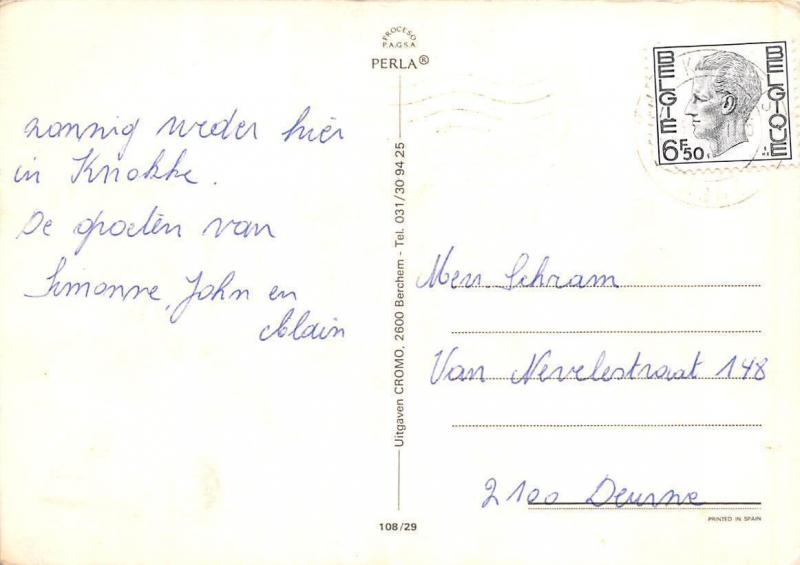 zonnig weder hier
in Knokke.
De groeten van
Simonne, John en
Alain
PROCESO
P.A.G.S.A.
PERLA®
Uitgaven CROMO, 2600 Berchem - Tel. 031/30 94 25
108/29
BELGIE
BELGIQUE
6F50
Mevr Schram
Van Nevelestraat 148
2100 Deurne
PRINTED IN SPAIN